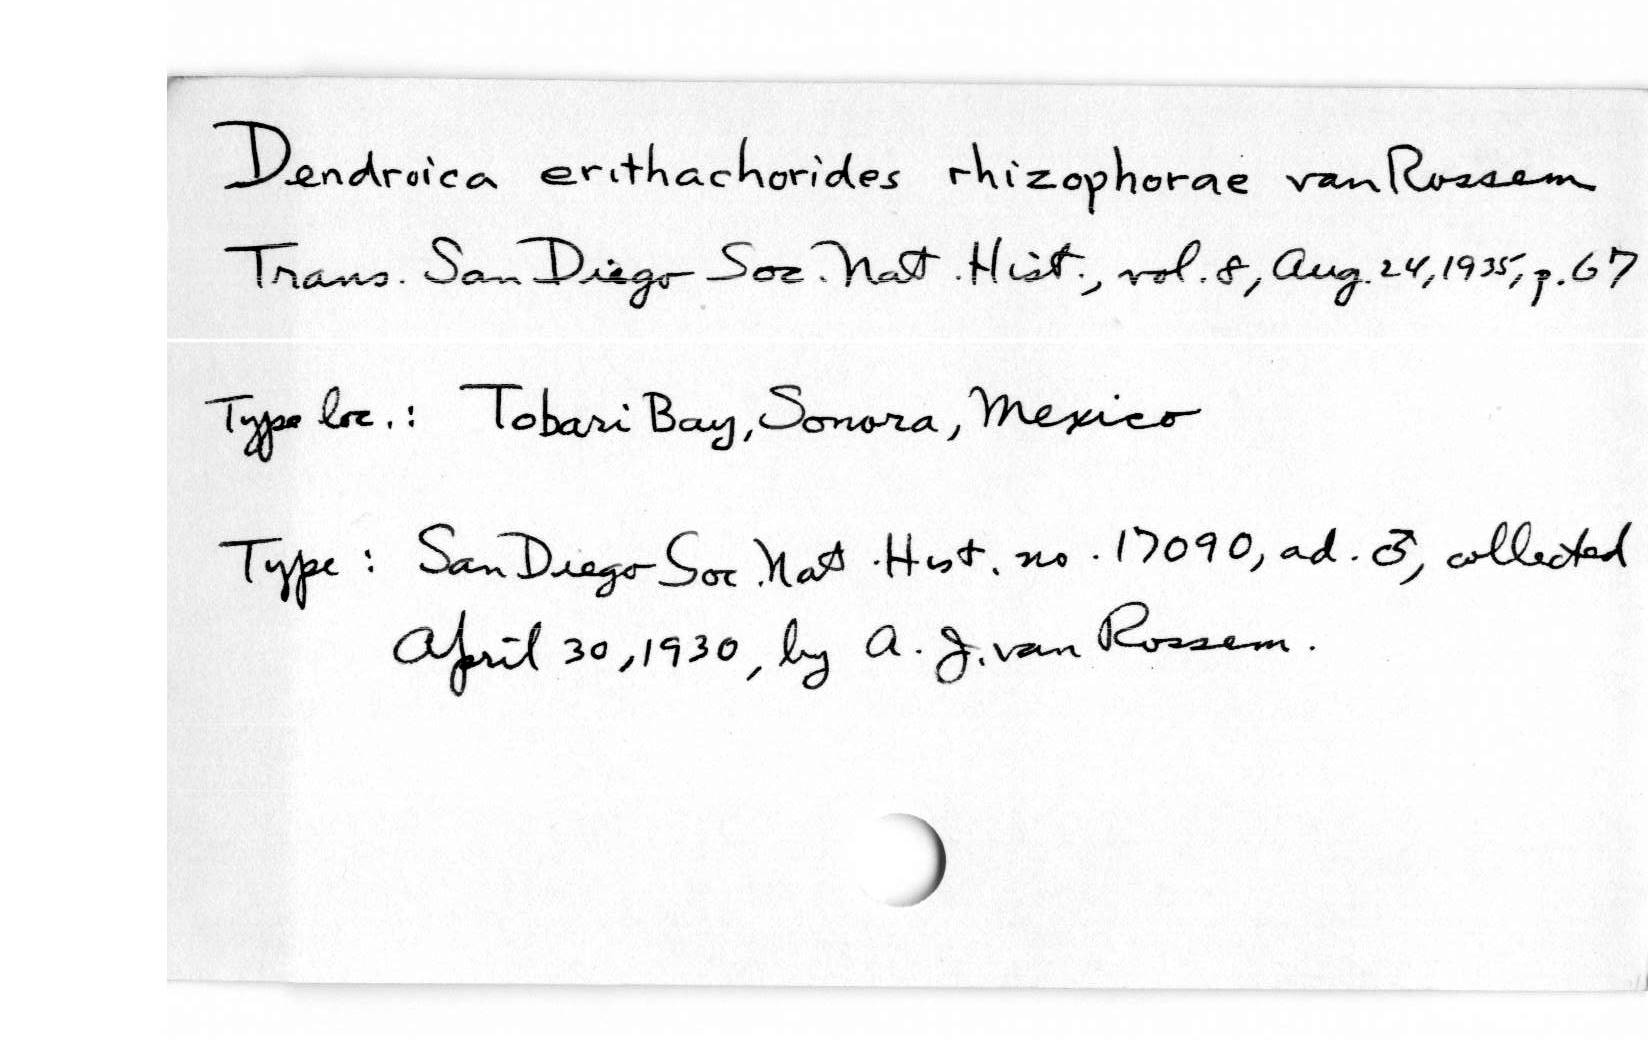 Dendroica erithachorides rhizophorae van Rossem
Trans. San Diego Soc. Nat. Hist., vol. 8, Aug. 24, 1935, p. 67
Type loc.: Tobari Bay, Sonora, Mexico
Type: San Diego Soc. Nat. Hist. no. 17090, ad. ♂, collected
April 30, 1930, by A. J. van Rossem.